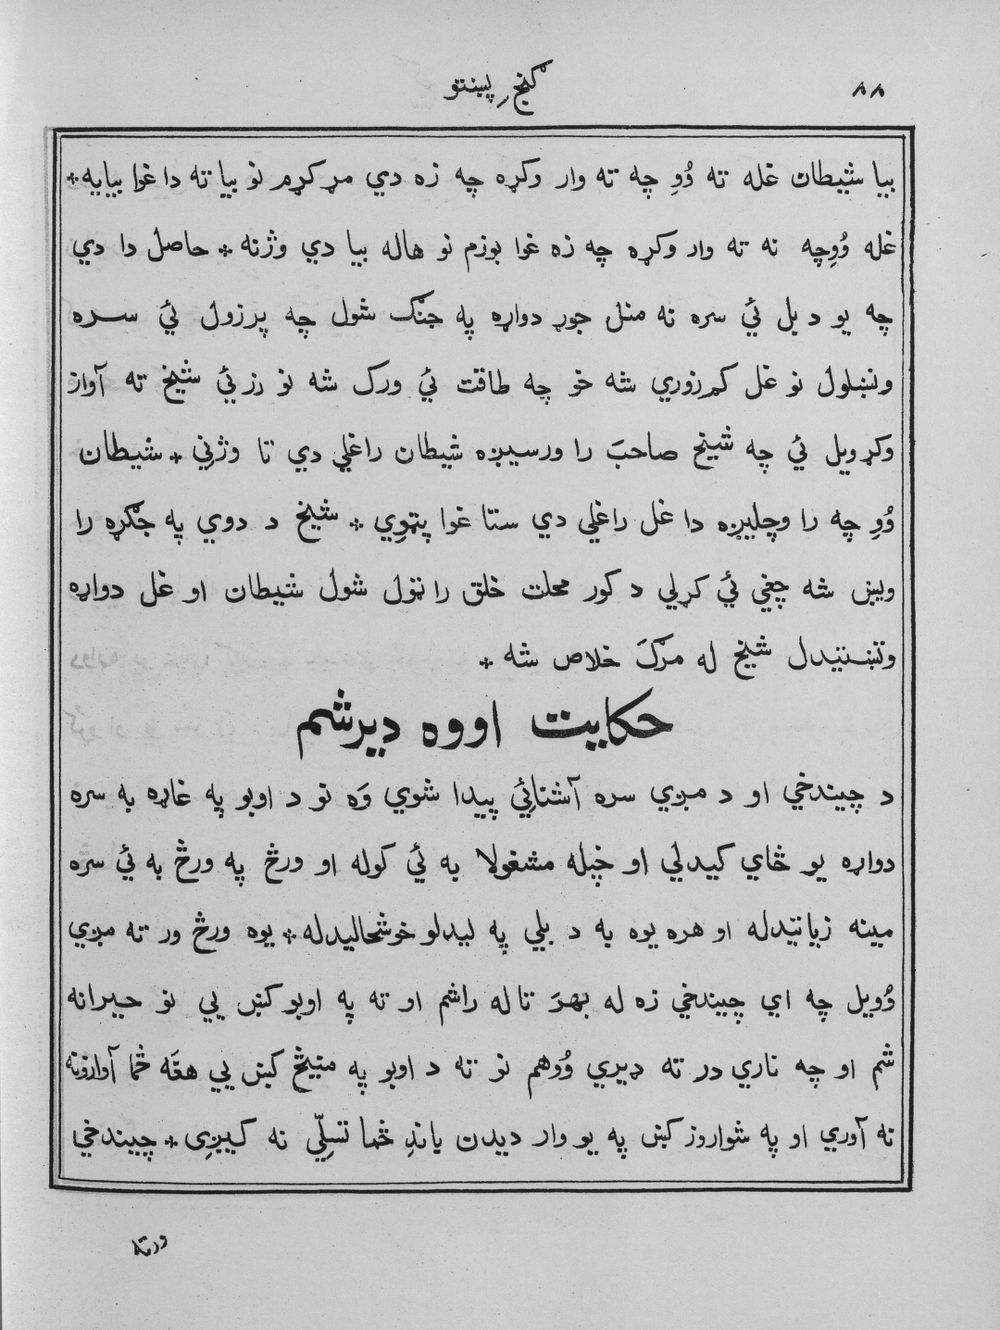 ٨٨
گنجِ پښتو
بيا شيطان غله ته وُوِ چه ته وار وکړه چه زه دي مړ کړم نو بيا ته دا غوا بيايه *
غله وُوِچه نه ته وار وکړه چه زه غوا بوزم نو هاله بيا دي وژنه * حاصل دا دي
چه يو د بل ئي سره نه منل جوړ دواړه په جنګ شول چه پرزول ئي سره
ونښلول نو غل کمزوري شه خو چه طاقت ئي ورک شه نو زر ئي شيخ ته آواز
وکړ ويل ئي چه شيخ صاحبَ را ورسيږه شيطان راغلي دي تا وژنِي * شيطان
وُوِ چه را وچليږه دا غل راغلي دي ستا غوا پټوِي * شيخ د دوي په جګړه را
ويښ شه چغي ئي کړلي د کور محلت خلق را ټول شول شيطان او غل دواړه
وتښتيدل شيخ له مرګَ خلاص شه *
حکايت اووه ديرشم
د چيندخي او د مږي سره آشنائي پيدا شوي وَه نو د اوبو په غاړه به سره
دواړه يو ځاي کيدلي او خپله مشغولا به ئي کوله او ورځ په ورځ به ئي سره
مينه زياتيدله او هره يوه به د بلي په ليدلو خوشحاليدله * يوه ورځ ور ته مږي
وُويل چه اي چيندخي زه له بهرَ تا له راشم او ته په اوبو کښ يي نو حيرانه
شم او چه ناري در ته ډيري وُوهم نو ته د اوبو په مَنيځ کښ يي هغَه ځما آوازونه
نه آوري او په شواروز کښ په يو وار ديدن ياندِ ځما تسلِّي نه کيږِي * چيندخي
ورته